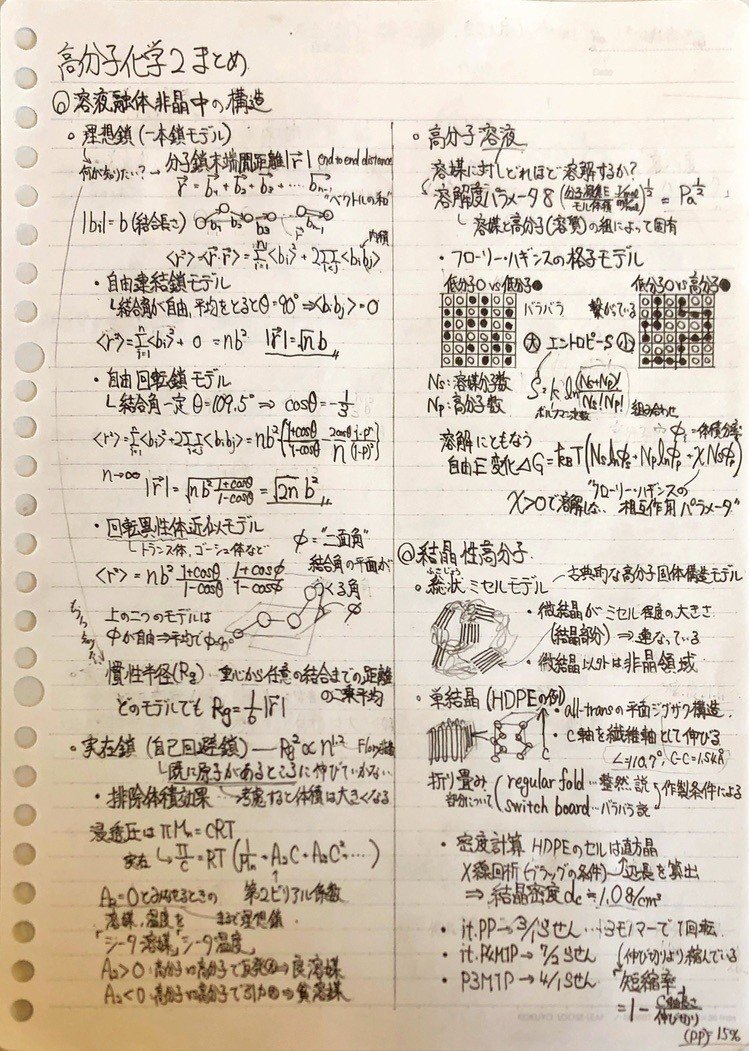 高分子化学2まとめ
◎溶液融体非晶中の構造
・理想鎖(一本鎖モデル)
何が知りたい?→分子鎖末端間距離|r→| end to end distance
r→ = b→₁+b→₂+b→₃+…b→ₙ₋₁
"ベクトルの和"
|bi|=b(結合長さ)
b→₁ b→₂ b→₃ b→ₙ₋₁
r→
内積
<r²>=<r→・r→>=Σ<bi>²+2ΣΣ<bi bj>
・自由連結鎖モデル
└結合角が自由,平均をとるとθ=90°⇒<bi bj>=0
<r²>=Σ<bi>²+0=nb² |r→|=√n b
・自由回転鎖モデル
└結合角一定θ=109.5°⇒cosθ=-1/3
<r²>=Σ<bi>²+2ΣΣ<bi bj>=nb²
n→∞ |r→|=√nb² 1+cosθ/1-cosθ=√2n b²
・回転異性体近似モデル
└トランス体,ゴーシュ体など
φ="二面角"
結合角の平面が
つくる角
<r²>=nb² 1+cosθ/1-cosθ・1+cosφ/1-cosφ
φ
上の二つのモデルは
φが自由⇒平均でφ=90°
慣性半径(Rg)…重心から任意の結合までの距離
の二乗平均
どのモデルでもRg=1/6|r→|
・実在鎖(自己回避鎖)―Rg²∝n^1.2
└既に原子があるところに伸びていかない
・排除体積効果→考慮すると体積は大きくなる
浸透圧はπMn=CRT
実在└π/C=RT(1/Mn+A₂C+A₃C²…)
第2ビリアル係数
A₂=0とみなせるときの
溶媒,温度を
まるで理想鎖
「シータ溶媒」「シータ温度」
A₂>0:高分子と高分子で反発⇒良溶媒
A₂<0:高分子と高分子で引力⇒貧溶媒
・高分子溶液
溶媒に対しどれほど溶解するか?
溶解度パラメータδ(分子凝集E/モル体積)^½=Pa^½
└溶媒と高分子(溶質)の組によって固有
・フローリー・ハギンスの格子モデル
低分子○vs低分子●
低分子○vs高分子●
バラバラ
繋がっている
大 エントロピーS 小
Ns:溶媒分子数
Np:高分子数
S=k ln (Ns+Np)!/Ns!Np!
ボルツマン定数
組み合わせ
φ=体積分率
溶解にともなう
自由E変化ΔG=kBT(Ns lnφs+Np lnφp+χNsφp)
"フローリー・ハギンスの
相互作用パラメータ"
χ>0で溶解しない
◎結晶性高分子
ふさじょう
・総状ミセルモデル―古典的な高分子固体構造モデル
・微結晶がミセル程度の大きさ
(結晶部分)⇒連なっている
・微結晶以外は非晶領域
・単結晶(HDPEの例)
・all-transの平面ジグザグ構造
・C軸を繊維軸として伸びる
C
C-C=1.54Å
折り畳み
部分について
regular fold…整然説
switch board…バラバラ説
作製条件による
・密度計算 HDPEのセルは直方晶
X線回折(ブラッグの条件)→辺長を算出
⇒結晶密度dc≒1.0g/cm³
・it.PP→3/1らせん…3モノマーで1回転
・it.P4M1P→7/2らせん
・P3M1P→4/1らせん
伸び切りより縮んでいる
"短縮率"
(PP)=15%